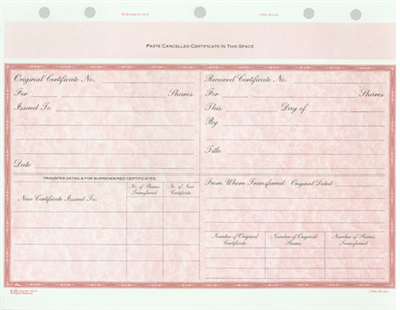 PASTE CANCELLED CERTIFICATE IN THIS SPACE
Original Certificate No.
For Shares
Issued To
Date
Received Certificate No.
For Shares
This Day of
By
Title
TRANSFER DETAILS FOR SURRENDERED CERTIFICATES
New Certificate Issued To:
No. of Shares Transferred
No. of New Certificate
From Whom Transferred Original Dated
Number of Original Certificate
Number of Original Shares
Number of Shares Transferred